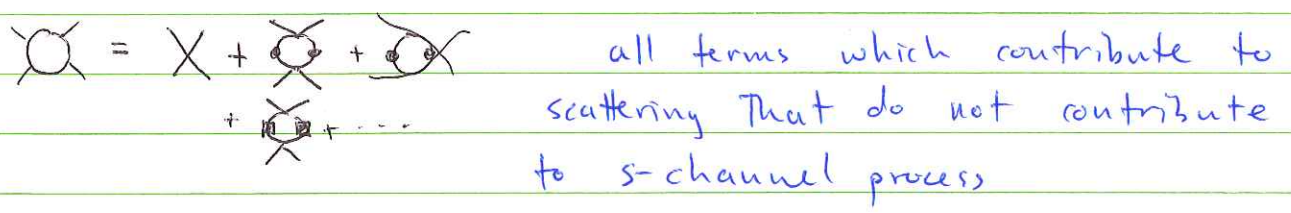 = + +
all terms which contribute to
+ + ....
scattering That do not contribute
to s-channel process